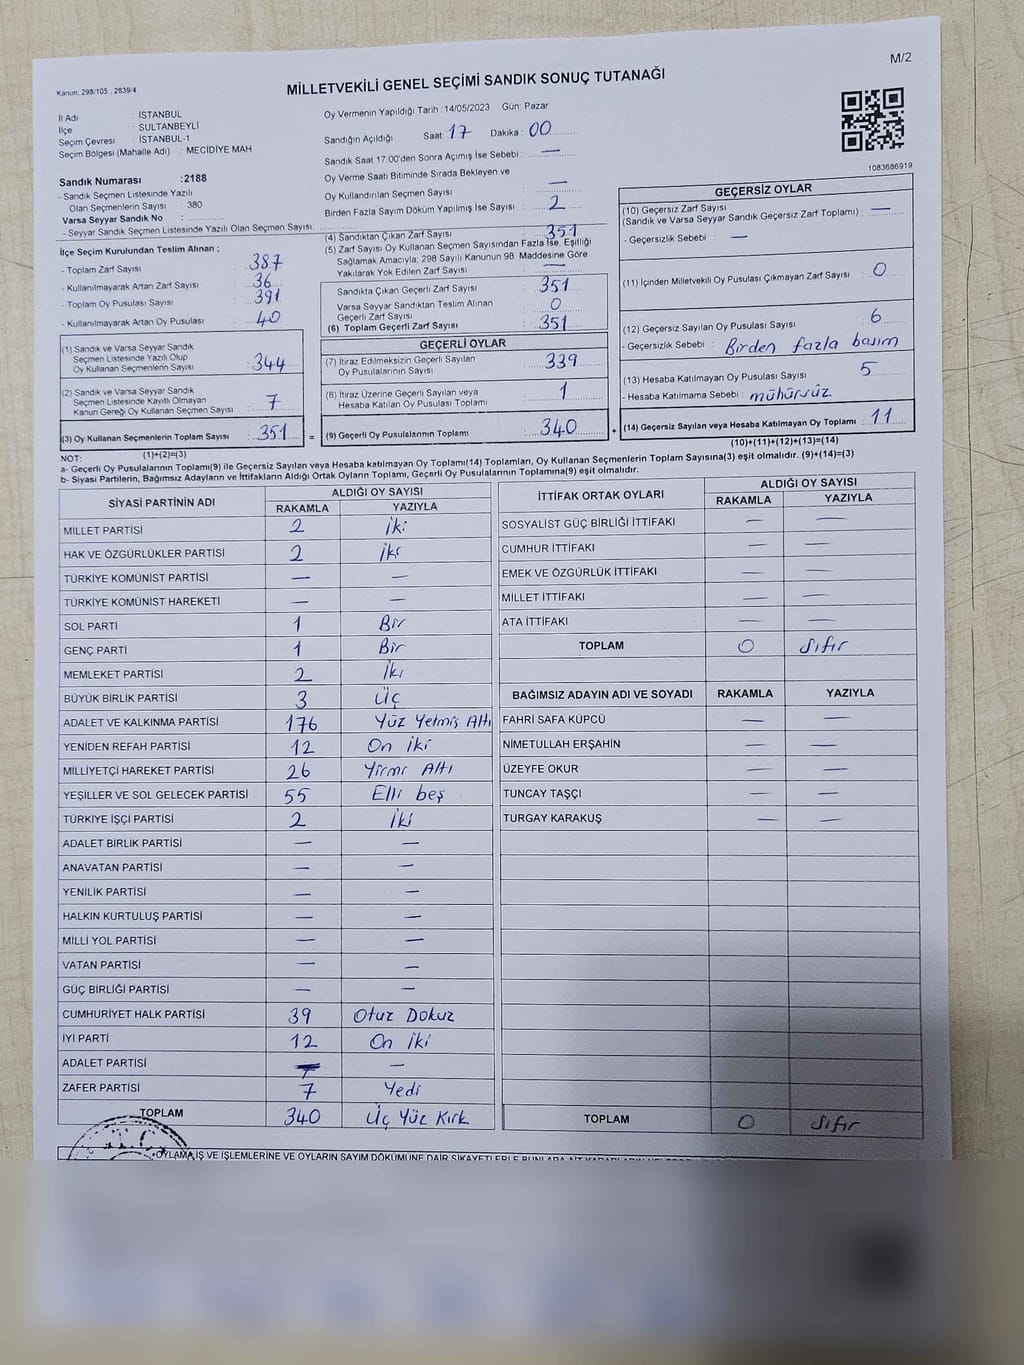 M/2
Kanun, 298/105 , 2839/4
MİLLETVEKİLİ GENEL SEÇİMİ SANDIK SONUÇ TUTANAĞI
İl Adı : İSTANBUL
İlçe : SULTANBEYLİ
Seçim Çevresi : İSTANBUL-1
Seçim Bölgesi (Mahalle Adı) : MECİDİYE MAH
Sandık Numarası :2188
- Sandık Seçmen Listesinde Yazılı
Olan Seçmenlerin Sayısı : 380
Varsa Seyyar Sandık No :
- Seyyar Sandık Seçmen Listesinde Yazılı Olan Seçmen Sayısı:
İlçe Seçim Kurulundan Teslim Alınan ;
- Toplam Zarf Sayısı : 387
- Kullanılmayarak Artan Zarf Sayısı : 36
- Toplam Oy Pusulası Sayısı : 391
- Kullanılmayarak Artan Oy Pusulası : 40
(1) Sandık ve Varsa Seyyar Sandık
Seçmen Listesinde Yazılı Olup
Oy Kullanan Seçmenlerin Sayısı : 344
(2) Sandık ve Varsa Seyyar Sandık
Seçmen Listesinde Kayıtlı Olmayan
Kanun Gereği Oy Kullanan Seçmen Sayısı : 7
(3) Oy Kullanan Seçmenlerin Toplam Sayısı : 351 =
(1)+(2)=(3)
Oy Vermenin Yapıldığı Tarih :14/05/2023 Gün: Pazar
Sandığın Açıldığı Saat: 17 Dakika : 00
Sandık Saat 17:00'den Sonra Açımış İse Sebebi : —
Oy Verme Saati Bitiminde Sırada Bekleyen ve
Oy Kullandırılan Seçmen Sayısı : —
Birden Fazla Sayım Döküm Yapılmış İse Sayısı : 2
(4) Sandıktan Çıkan Zarf Sayısı : 351
(5) Zarf Sayısı Oy Kullanan Seçmen Sayısından Fazla İse, Eşitliği
Sağlamak Amacıyla, 298 Sayılı Kanunun 98. Maddesine Göre
Yakılarak Yok Edilen Zarf Sayısı : —
Sandıkta Çıkan Geçerli Zarf Sayısı : 351
Varsa Seyyar Sandıktan Teslim Alınan
Geçerli Zarf Sayısı : 0
(6) Toplam Geçerli Zarf Sayısı : 351
GEÇERLİ OYLAR
(7) İtiraz Edilmeksizin Geçerli Sayılan
Oy Pusulalarının Sayısı : 339
(8) İtiraz Üzerine Geçerli Sayılan veya
Hesaba Katılan Oy Pusulası Toplamı : 1
(9) Geçerli Oy Pusulalarının Toplamı : 340 +
1083686919
GEÇERSİZ OYLAR
(10) Geçersiz Zarf Sayısı
(Sandık ve Varsa Seyyar Sandık Geçersiz Zarf Toplamı) : —
- Geçersizlik Sebebi : —
(11) İçinden Milletvekili Oy Pusulası Çıkmayan Zarf Sayısı : 0
(12) Geçersiz Sayılan Oy Pusulası Sayısı : 6
- Geçersizlik Sebebi : Birden fazla basım
(13) Hesaba Katılmayan Oy Pusulası Sayısı : 5
- Hesaba Katılmama Sebebi : mühürsüz
(14) Geçersiz Sayılan veya Hesaba Katılmayan Oy Toplamı : 11
(10)+(11)+(12)+(13)=(14)
NOT:
a- Geçerli Oy Pusulalarının Toplamı(9) ile Geçersiz Sayılan veya Hesaba katılmayan Oy Toplamı(14) Toplamları, Oy Kullanan Seçmenlerin Toplam Sayısına(3) eşit olmalıdır. (9)+(14)=(3)
b- Siyasi Partilerin, Bağımsız Adayların ve İttifakların Aldığı Ortak Oyların Toplamı, Geçerli Oy Pusulalarının Toplamına(9) eşit olmalıdır.
SİYASİ PARTİNİN ADI ALDIĞI OY SAYISI
RAKAMLA YAZIYLA
MİLLET PARTİSİ 2 İki
HAK VE ÖZGÜRLÜKLER PARTİSİ 2 İki
TÜRKİYE KOMÜNİST PARTİSİ — —
TÜRKİYE KOMÜNİST HAREKETİ — —
SOL PARTİ 1 Bir
GENÇ PARTİ 1 Bir
MEMLEKET PARTİSİ 2 İki
BÜYÜK BİRLİK PARTİSİ 3 Üç
ADALET VE KALKINMA PARTİSİ 176 Yüz Yetmiş Altı
YENİDEN REFAH PARTİSİ 12 On İki
MİLLİYETÇİ HAREKET PARTİSİ 26 Yirmi Altı
YEŞİLLER VE SOL GELECEK PARTİSİ 55 Elli beş
TÜRKİYE İŞÇİ PARTİSİ 2 İki
ADALET BİRLİK PARTİSİ — —
ANAVATAN PARTİSİ — —
YENİLİK PARTİSİ — —
HALKIN KURTULUŞ PARTİSİ — —
MİLLİ YOL PARTİSİ — —
VATAN PARTİSİ — —
GÜÇ BİRLİĞİ PARTİSİ — —
CUMHURİYET HALK PARTİSİ 39 Otuz Dokuz
İYİ PARTİ 12 On İki
ADALET PARTİSİ — —
ZAFER PARTİSİ 7 Yedi
TOPLAM 340 Üç Yüz Kırk
İTTİFAK ORTAK OYLARI ALDIĞI OY SAYISI
RAKAMLA YAZIYLA
SOSYALİST GÜÇ BİRLİĞİ İTTİFAKI — —
CUMHUR İTTİFAKI — —
EMEK VE ÖZGÜRLÜK İTTİFAKI — —
MİLLET İTTİFAKI — —
ATA İTTİFAKI — —
TOPLAM 0 Sıfır
BAĞIMSIZ ADAYIN ADI VE SOYADI RAKAMLA YAZIYLA
FAHRİ SAFA KÜPCÜ — —
NİMETULLAH ERŞAHİN — —
ÜZEYFE OKUR — —
TUNCAY TAŞÇI — —
TURGAY KARAKUŞ — —
TOPLAM 0 Sıfır
OYLAMA İŞ VE İŞLEMLERİNE VE OYLARIN SAYIM DÖKÜMÜNE DAİR ŞİKAYETLERLE BUNLARA AİT